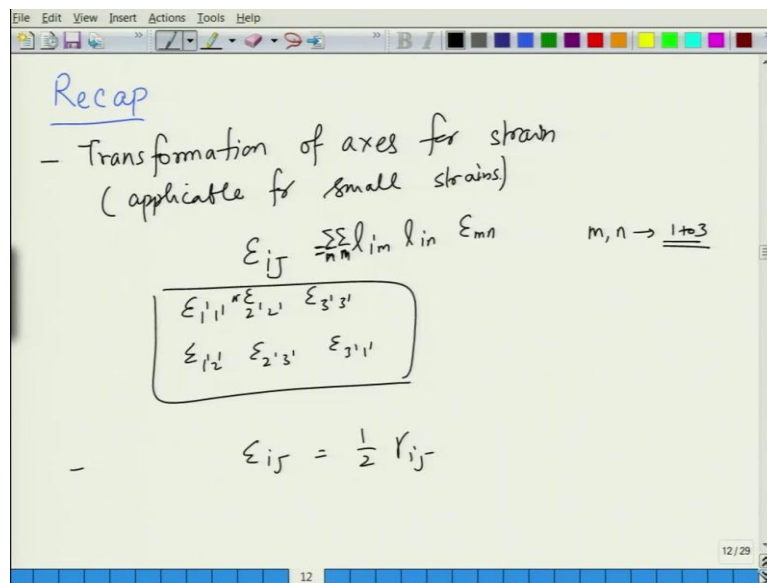 File Edit View Insert Actions Tools Help
B I
Recap
- Transformation of axes for strain
(applicable for small strains)
εij = ΣΣ lim lin εmn m, n → 1 to 3
n m
ε1'1' ε2'2' ε3'3'
ε1'2' ε2'3' ε3'1'
- εij = 1/2 γij
12/29
12